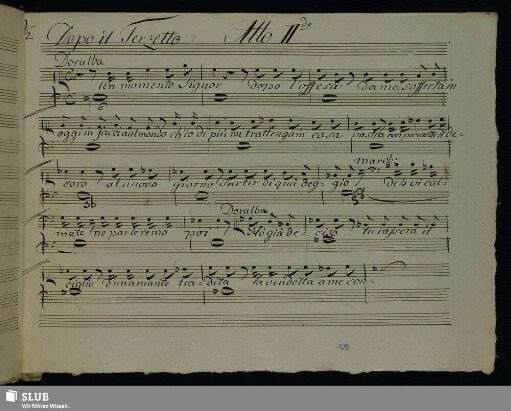 Dopo il Terzetto Atto II do
Doralba
Un momento Signor dopo l'offesa da me sofferta in
oggi in faccia al mondo ch'io di più mi trattenga in casa vostra non permette il de-
coro al nuovo giorno Partir di qui deg-gio deh vi cal-
mate ne parleremo poi
Doralba
Hò già de-ciso tu rasserà il
ciglio d'un amante tra-dita la vendetta a me con-
108
SLUB
Wir führen Wissen.